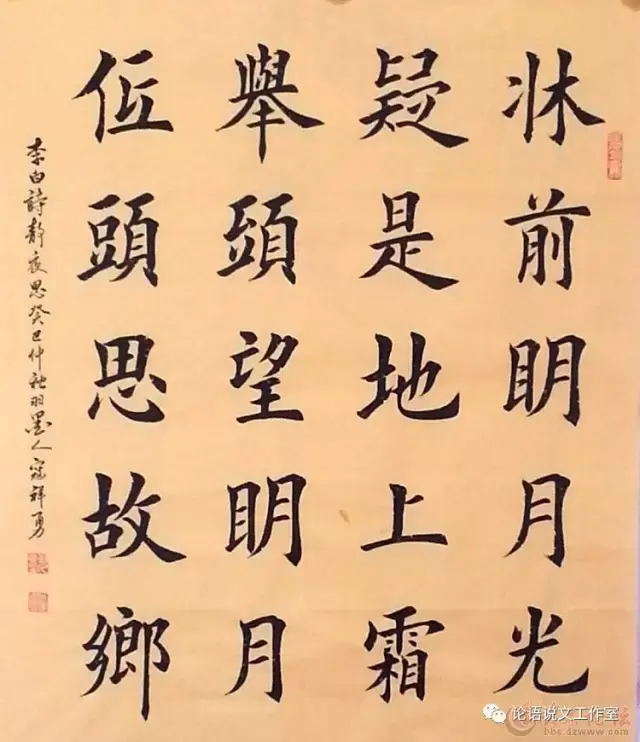 牀前明月光
疑是地上霜
舉頭望明月
低頭思故鄉
李白詩靜夜思癸巳仲秋羽墨人寇祥勇
论语说文工作室
bbs.dzwww.com